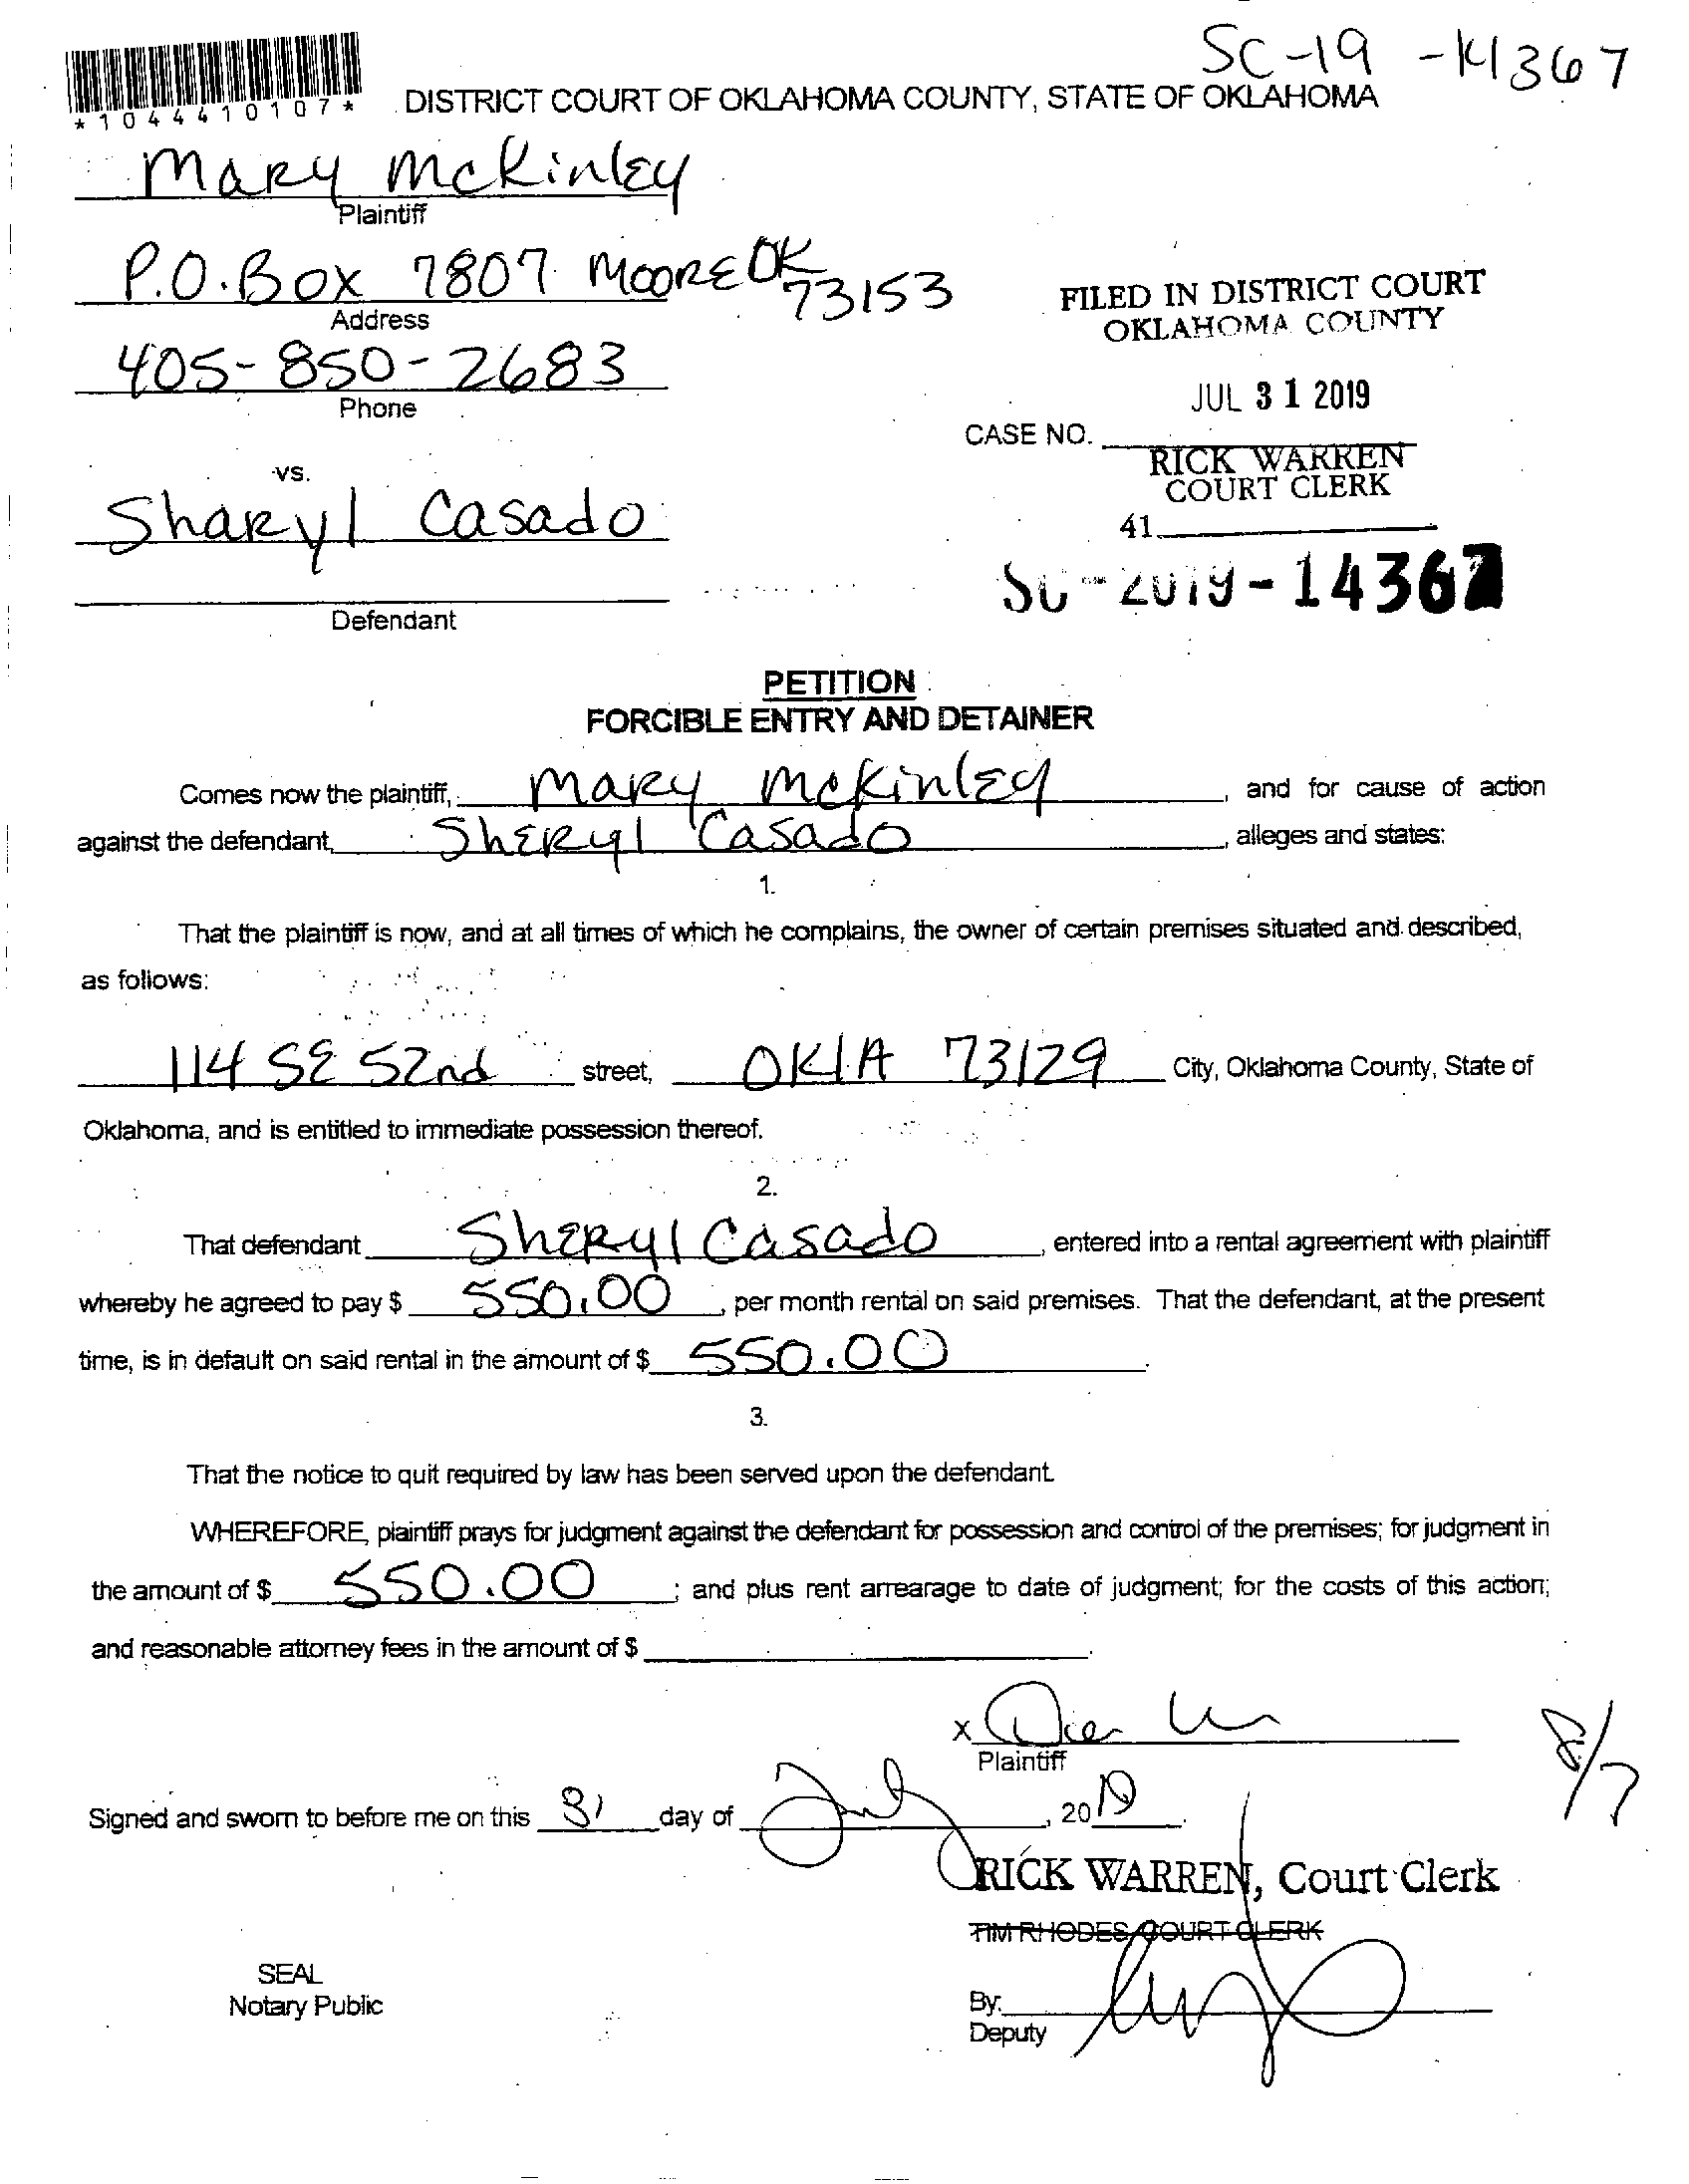 SC-19 -14367
*1044410107*
DISTRICT COURT OF OKLAHOMA COUNTY, STATE OF OKLAHOMA
Mary McKinley
Plaintiff
P.O. Box 7807 Moore OK 73153
Address
405-850-2683
Phone
FILED IN DISTRICT COURT
OKLAHOMA COUNTY
JUL 31 2019
CASE NO.
RICK WARREN
COURT CLERK
41
vs.
Sharyl Casado
Defendant
SC-2019-14367
PETITION
FORCIBLE ENTRY AND DETAINER
Comes now the plaintiff, Mary McKinley, and for cause of action
against the defendant, Sheryl Casado, alleges and states:
1.
That the plaintiff is now, and at all times of which he complains, the owner of certain premises situated and described,
as follows:
114 SE 52nd street, OKLA 73129 City, Oklahoma County, State of
Oklahoma, and is entitled to immediate possession thereof.
2.
That defendant Sheryl Casado, entered into a rental agreement with plaintiff
whereby he agreed to pay $ 550.00, per month rental on said premises. That the defendant, at the present
time, is in default on said rental in the amount of $ 550.00.
3.
That the notice to quit required by law has been served upon the defendant.
WHEREFORE, plaintiff prays for judgment against the defendant for possession and control of the premises; for judgment in
the amount of $ 550.00; and plus rent arrearage to date of judgment; for the costs of this action;
and reasonable attorney fees in the amount of $
x
Plaintiff
8/7
Signed and sworn to before me on this 31 day of July, 2019.
RICK WARREN, Court Clerk
TIM RHODES COURT CLERK
SEAL
Notary Public
By:
Deputy